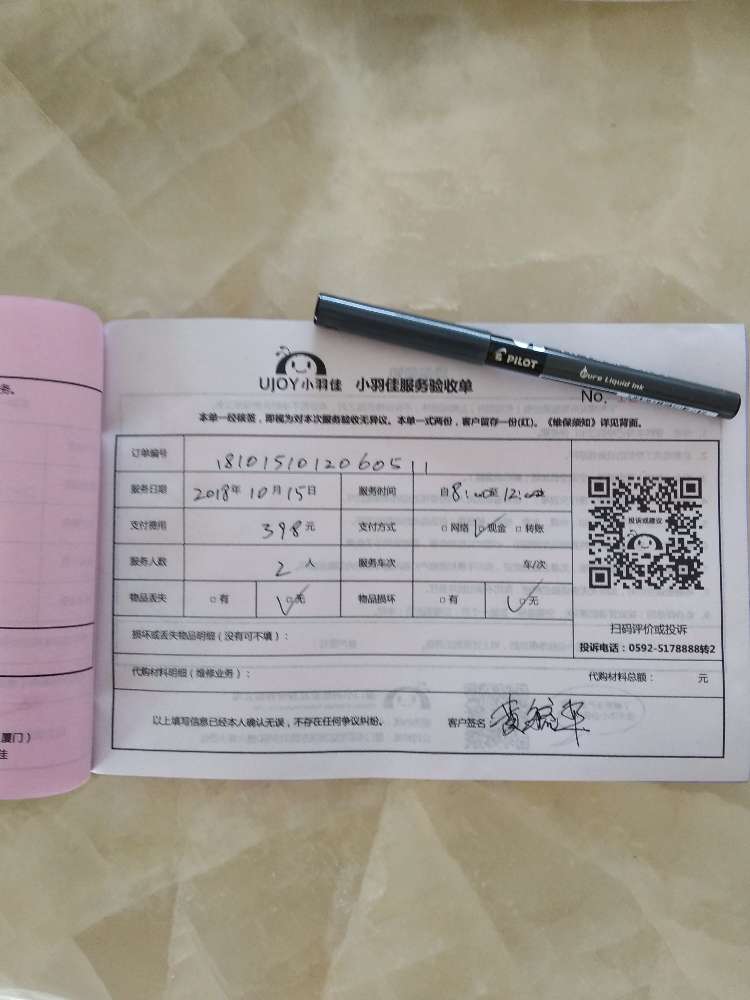 务。
厦门）
佳
PILOT
Pure Liquid Ink
UJOY小羽佳 小羽佳服务验收单
No.
本单一经核签，即视为对本次服务验收无异议。本单一式两份，客户留存一份(红)。《维保须知》详见背面。
订单编号 181015101206051 1
服务日期 2018年10月15日 服务时间 自8:00至12:00
支付费用 398元 支付方式 □网络 □现金 □转账
服务人数 2人 服务车次 车/次
物品丢失 □有 □无 物品损坏 □有 □无
投诉或建议
扫码评价或投诉
投诉电话：0592-5178888转2
损坏或丢失物品明细（没有可不填）：
代购材料明细（维修业务）： 代购材料总额： 元
以上填写信息已经本人确认无误，不存在任何争议纠纷。 客户签名